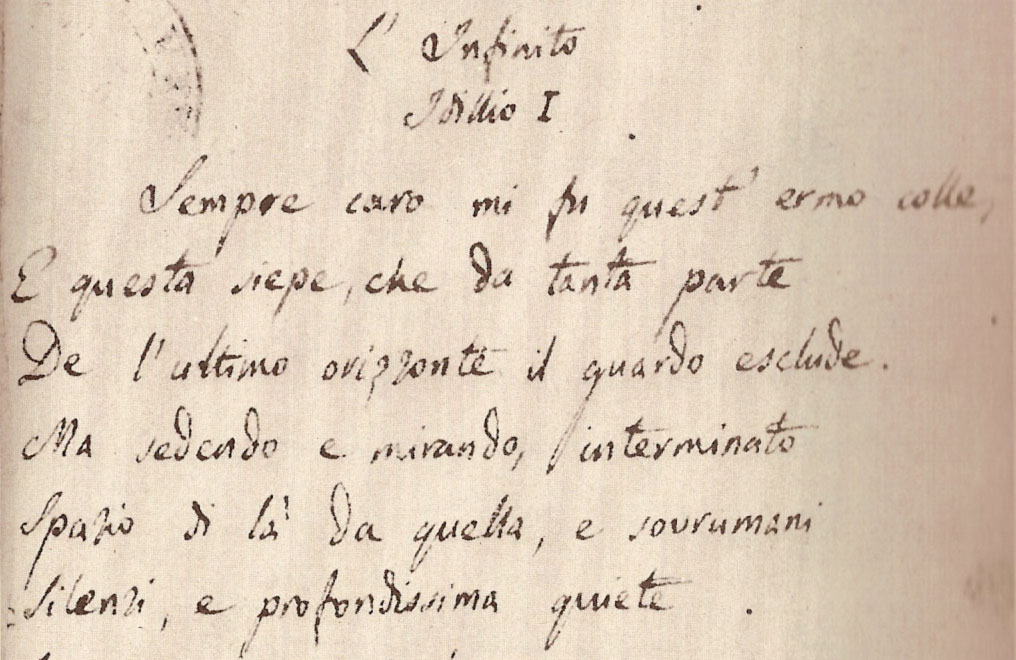 L' Infinito
Idillio I
Sempre caro mi fu quest' ermo colle,
E questa siepe, che da tanta parte
De l'ultimo orizzonte il guardo esclude.
Ma sedendo e mirando, interminato
Spazio di là da quella, e sovrumani
Silenzi, e profondissima quiete